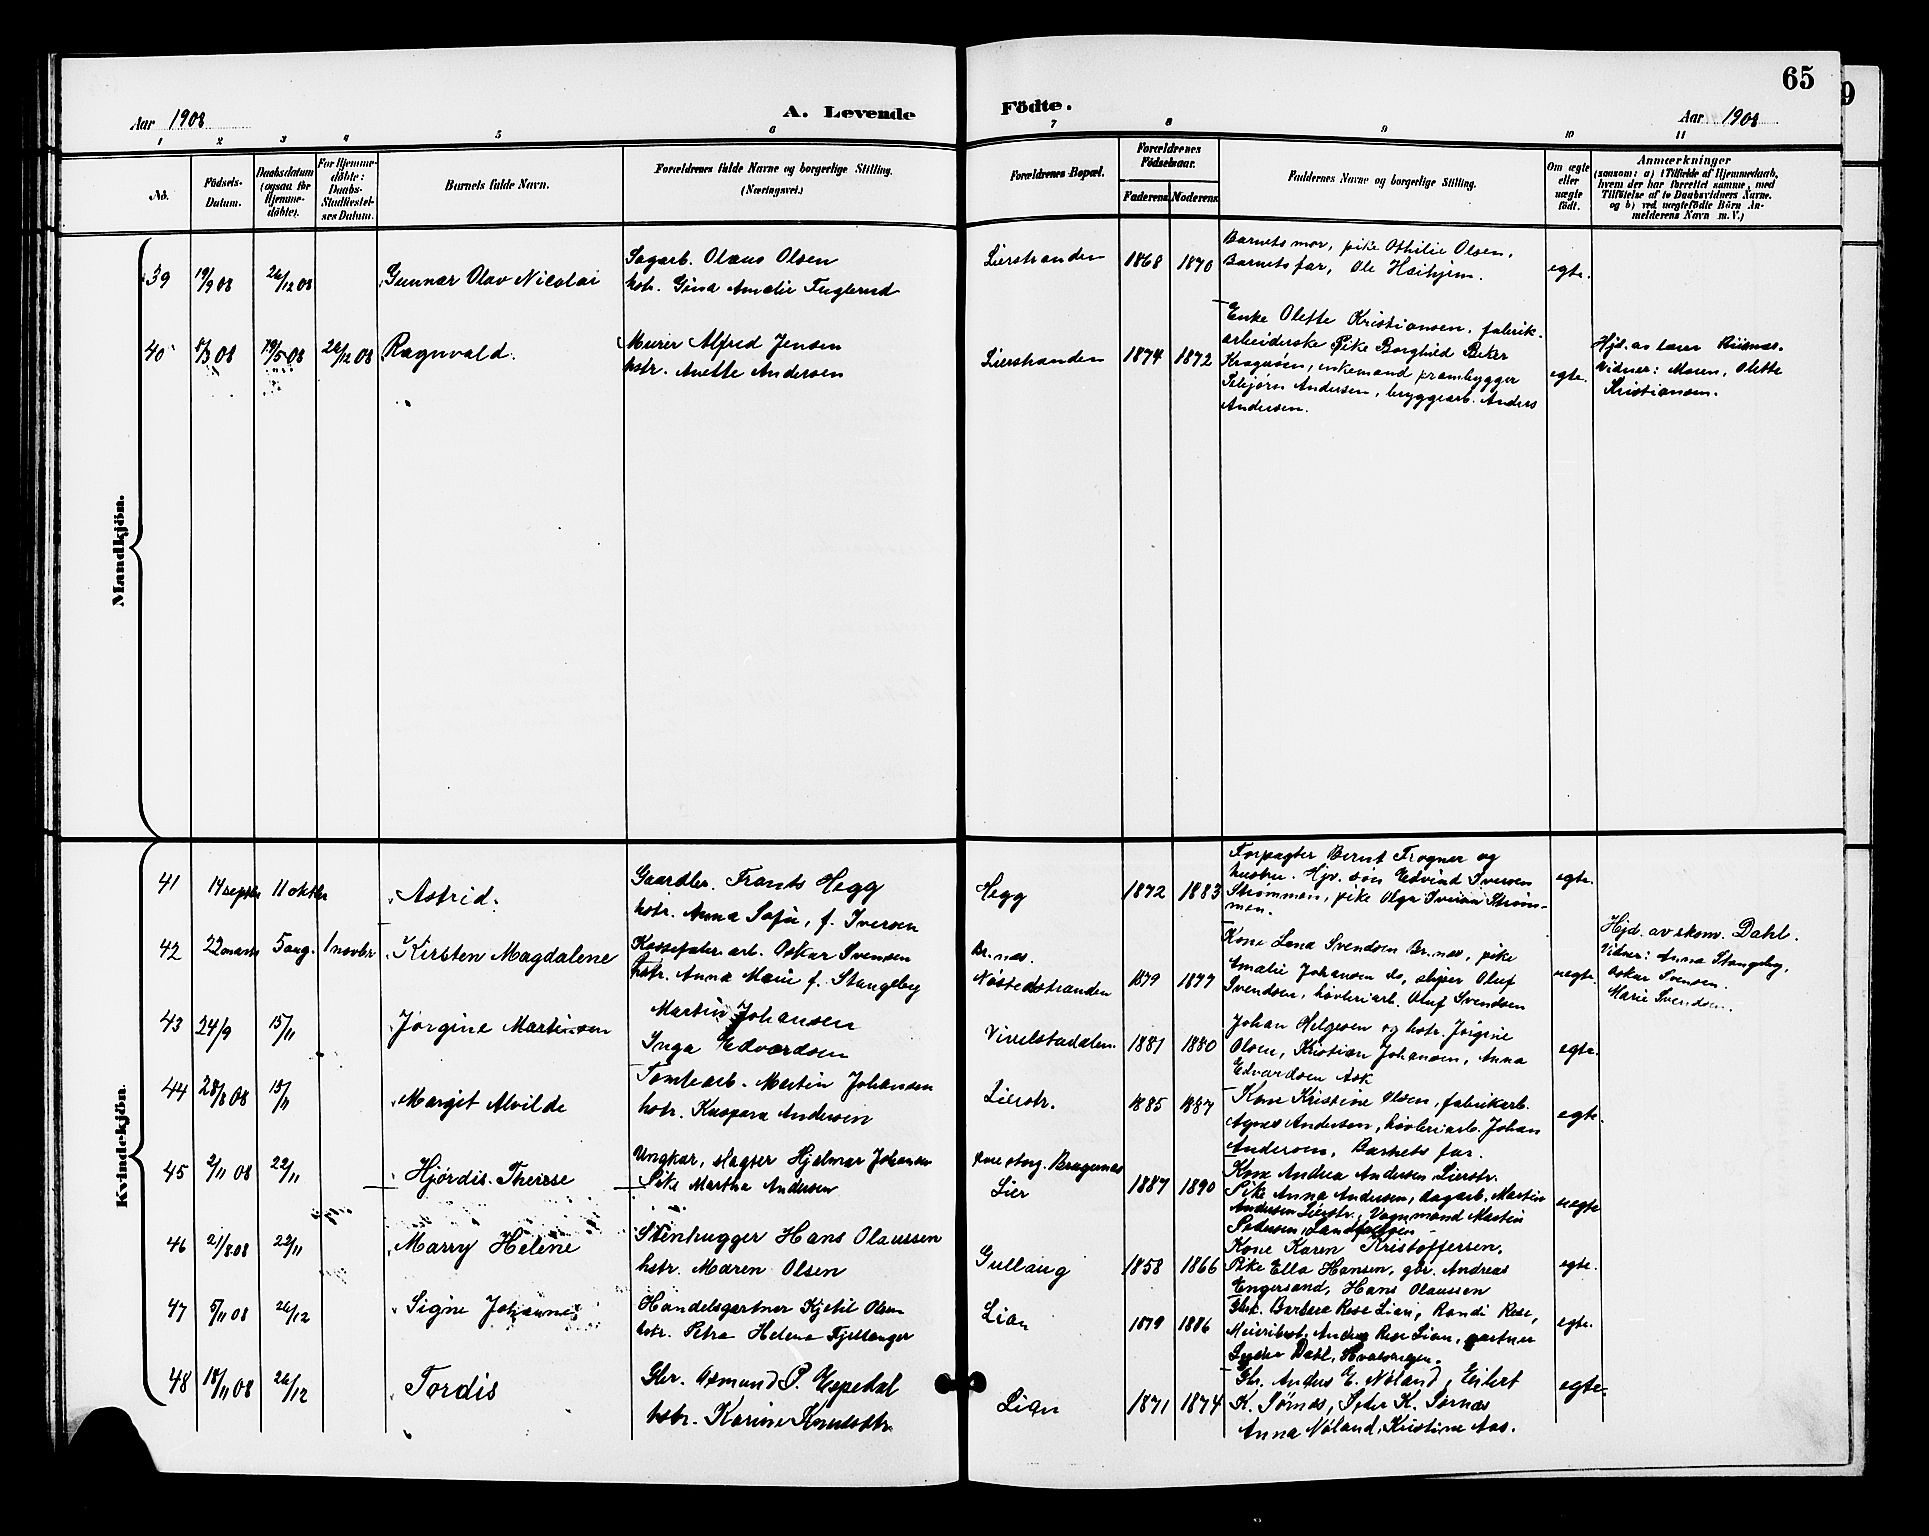 65
9
Aar 1908
A. Levende
Födte.
Aar 1908
1 2 3 4 5 6 7 8 9 10 11
No.
Födsels-
Datum.
Daabsdatum
(ogsaa for
Hjemme-
döbte).
For Hjemme-
döbte:
Daabs-
Stadfæstel-
ses Datum.
Barnets fulde Navn.
Forældrenes fulde Navne og borgerlige Stilling.
(Næringsvei.)
Forældrenes Bopæl.
Forældrenes
Födselsaar.
Faderens
Moderens
Faddernes Navne og borgerlige Stilling.
Om ægte
eller
uægte
født.
Anmærkninger
(saasom: a) i Tilfælde af Hjemmedaab,
hvem der har forrettet samme, med
Tilföielse af to Daabsvidners Navne.
og b) ved uægtefödte Börn An-
melderens Navn m. V.)
Mandkjön.
39 19/9 08 26/12 08 Gunnar Olav Nicolai
Sagarb. Olaus Olsen
hstr. Gina Amalie Fuglerud
Lierstranden 1868 1870
Barnets mor, pike Othilie Olsen,
Barnets far, Ole
egte.
40 8/3 08 19/5 08 26/12 08 Ragnvald.
Murer Alfred Jensen
hstr. Anette Andersen
Lierstranden 1874 1872
Enke Olette Kristiansen, fabrik-
arbeiderske Pike Borghild
enkemand prambygger
Andersen, bryggearb. Anders
Andersen.
egte.
Hjd. av lærer
Vidner: Maren, Olette
Kristiansen.
Kvindekjön.
41 14 septbr 11 oktbr Astrid.
Gaardbr. Frants Hegg
hstr. Anna Sofie, f. Iversen
Hegg 1872 1883
Forpagter Bernt Frogner og
hustru. Hjv. søn Edvind Iversen
Strømmen, pike Olga Iversen Strøm-
men.
egte.
42 22 marts 5 aug. 1 novbr Kirsten Magdalene
arb. Oskar Svensen
hstr. Anna Marie f. Stangeby
Br.nes.
Nøstedstranden 1879 1877
Kone Lena Svendsen Br.nes, pike
Emalie Johansen do, sliper Oluf
Svendsen, høvleriarb. Oluf Svendsen
uegte.
Hjd. av skom. Dahl.
Vidner: Anna Stangeby,
Oskar Svensen.
Marie Svendsen.
43 24/9 15/11 Jørgine Martinsen
Martin Johansen
Inga Edvardsen
Vivelstadalen. 1881 1880
Johan Helgesen og hstr. Jørgine
Olsen, Kristian Johansen, Anna
Edvardsen Ask
egte.
44 28/8 08 15/11 Margit Alvilde
Tomtearb. Martin Johansen
hstr. Kaspara Andersen
Lierstr. 1885 1887
Kone Kristine Olsen, fabrikarb.
Agnes Andersen, høvleriarb. Johan
Andersen, Barnets far.
egte.
45 2/11 08 22/11 Hjørdis Therese
Ungkar, slagter Hjelmar Johansen
Pike Martha Andersen
Bragernes
Lier 1887 1890
Kone Andrea Andersen Lierstr.
Pike Anna Andersen, dagarb. Martin
Andersen Lierstr., Vognmand Martin
Pedersen, Landfalløen
uegte
46 21/8 08 22/11 Marry Helene
Stenhugger Hans Olaussen
hstr. Maren Olsen
Gullaug 1858 1866
Kone Karen Kristoffersen.
Pike Ella Hansen, gbr. Andreas
Engersand, Hans Olaussen
egte.
47 5/11 08 26/12 Signe Johanne
Handelsgartner Kjetil Olsen
hstr. Petra Helene Fjeltanger
Lian 1879 1886
Gbk. Barbara Rese Lian, Randi Rese,
Meieribest. Anders Rese Lian, gartner
Dahl,
egte.
48 18/11 08 26/12 Tordis
Gbr. Osmund P. Espedal
hstr. Karine Knudsdtr.
Lian 1871 1874
Gbr. Anders E. Nøland, Eilert
K. Sørnes, Peter K. Sørnes
Anna Nøland, Kristine Aas.
egte.